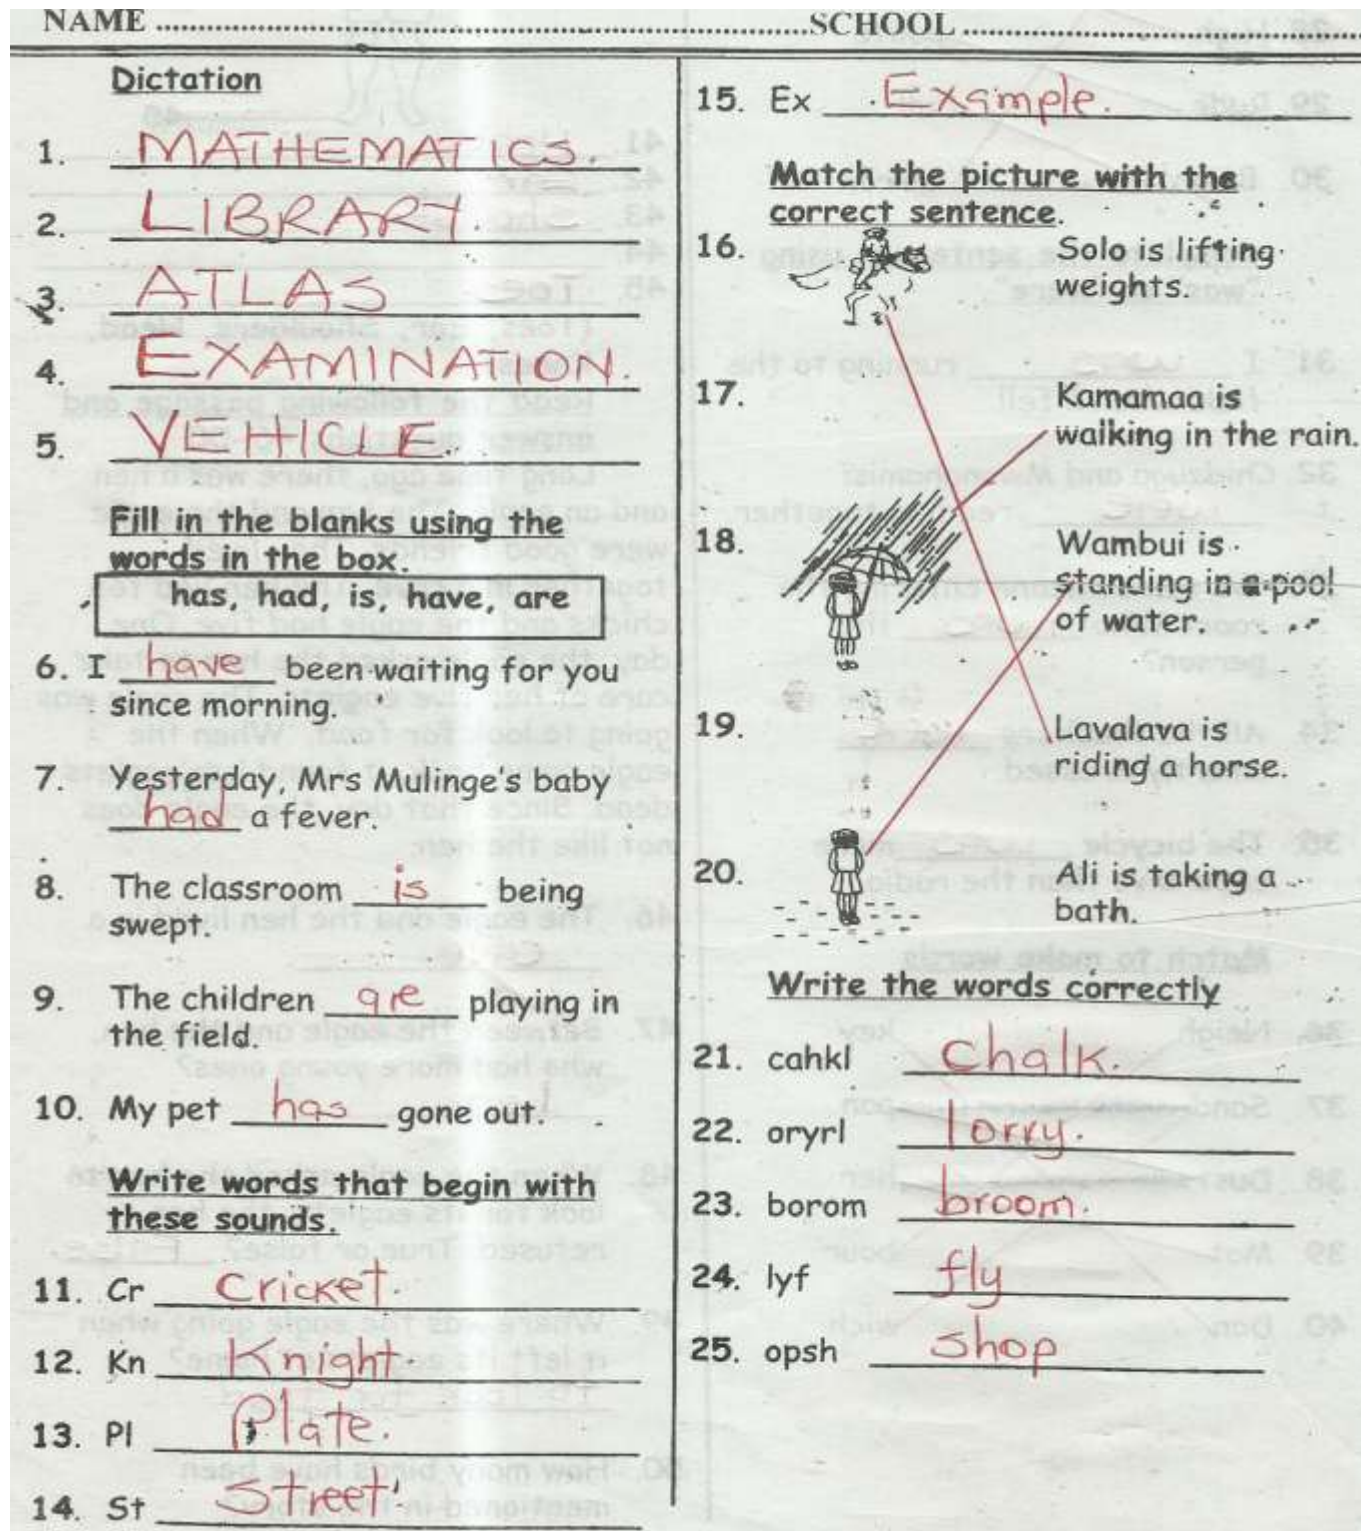 NAME ........................................ SCHOOL ........................................
Dictation
1. MATHEMATICS.
2. LIBRARY.
3. ATLAS
4. EXAMINATION.
5. VEHICLE.
Fill in the blanks using the
words in the box.
has, had, is, have, are
6. I have been waiting for you
since morning.
7. Yesterday, Mrs Mulinge's baby
had a fever.
8. The classroom is being
swept.
9. The children are playing in
the field.
10. My pet has gone out.
Write words that begin with
these sounds.
11. Cr Cricket.
12. Kn Knight.
13. Pl Plate.
14. St Street
15. Ex Example.
Match the picture with the
correct sentence.
16. Solo is lifting
weights.
17. Kamamaa is
walking in the rain.
18. Wambui is
standing in a pool
of water.
19. Lavalava is
riding a horse.
20. Ali is taking a
bath.
Write the words correctly
21. cahkl Chalk.
22. oryrl lorry.
23. borom broom.
24. lyf fly
25. opsh shop